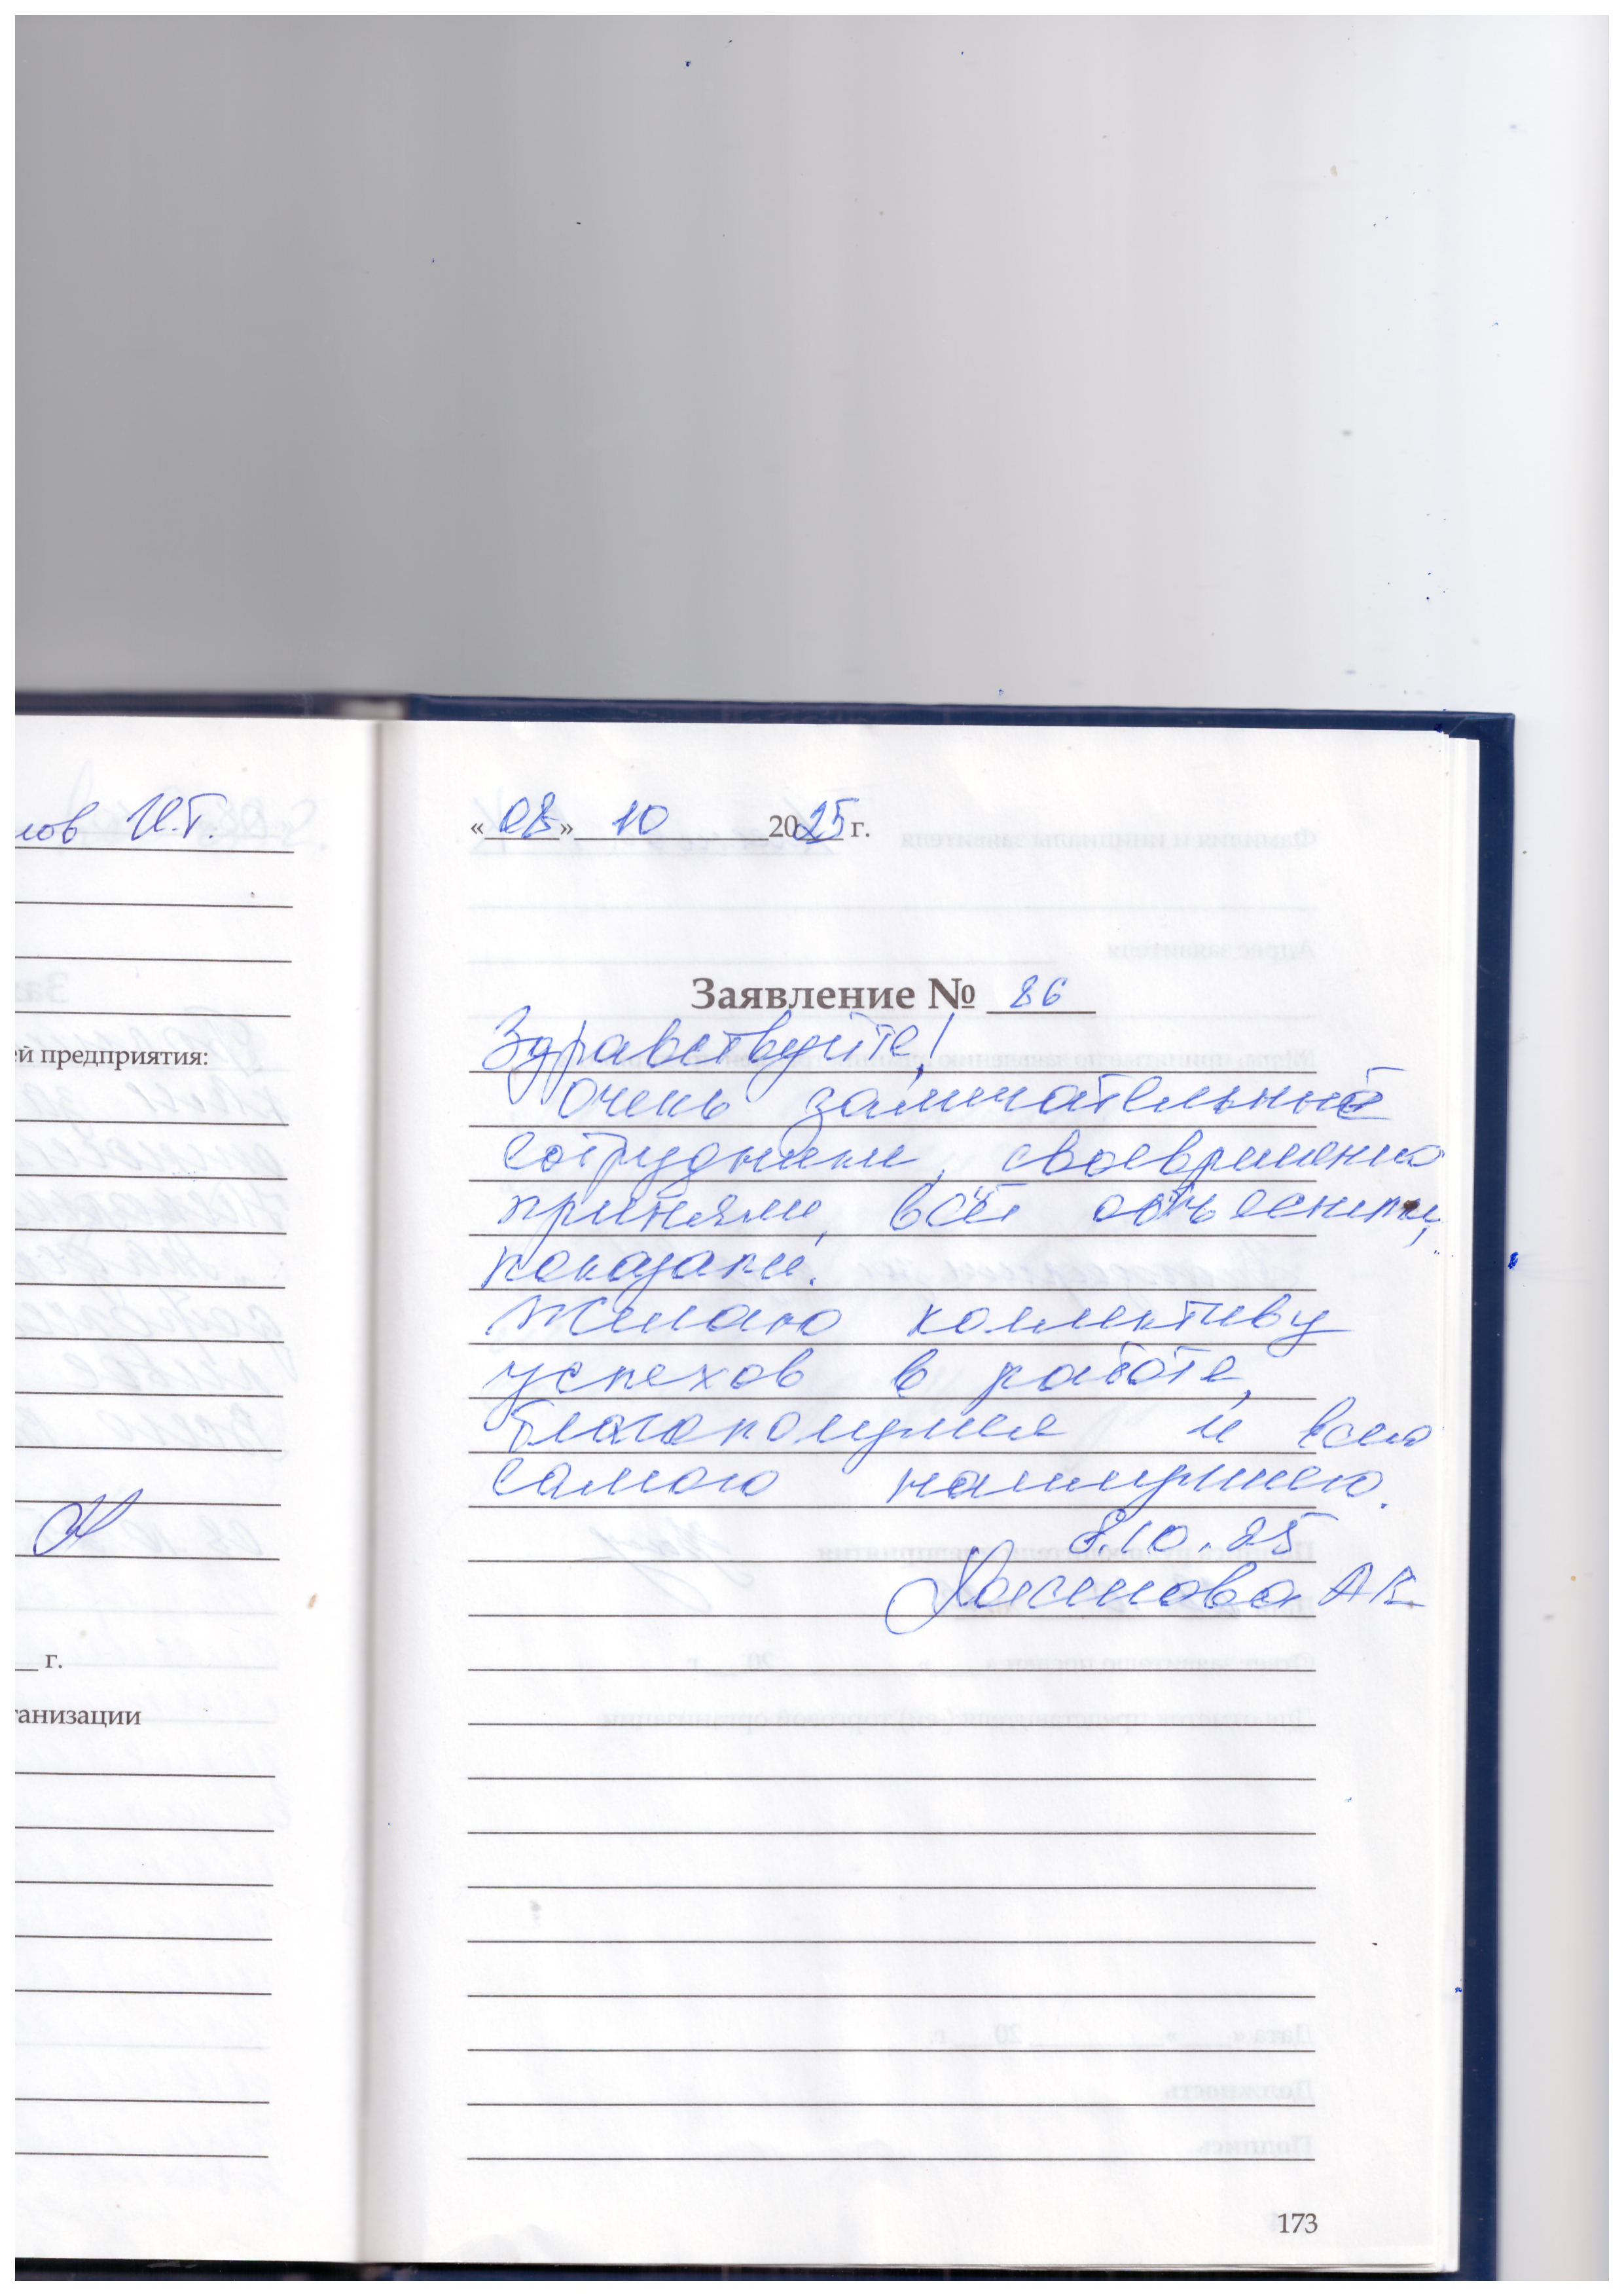 лов И.Г.
й предприятия:
г.
ганизации
« 08 » 10 2025 г.
Заявление № 86
Здравствуйте!
очень замечательные
сотрудники, своевременно
приняли, всё объяснили,
показали.
Желаю коллективу
успехов в работе,
благополучия и всего
самого наилучшего.
8.10.25
АК
173